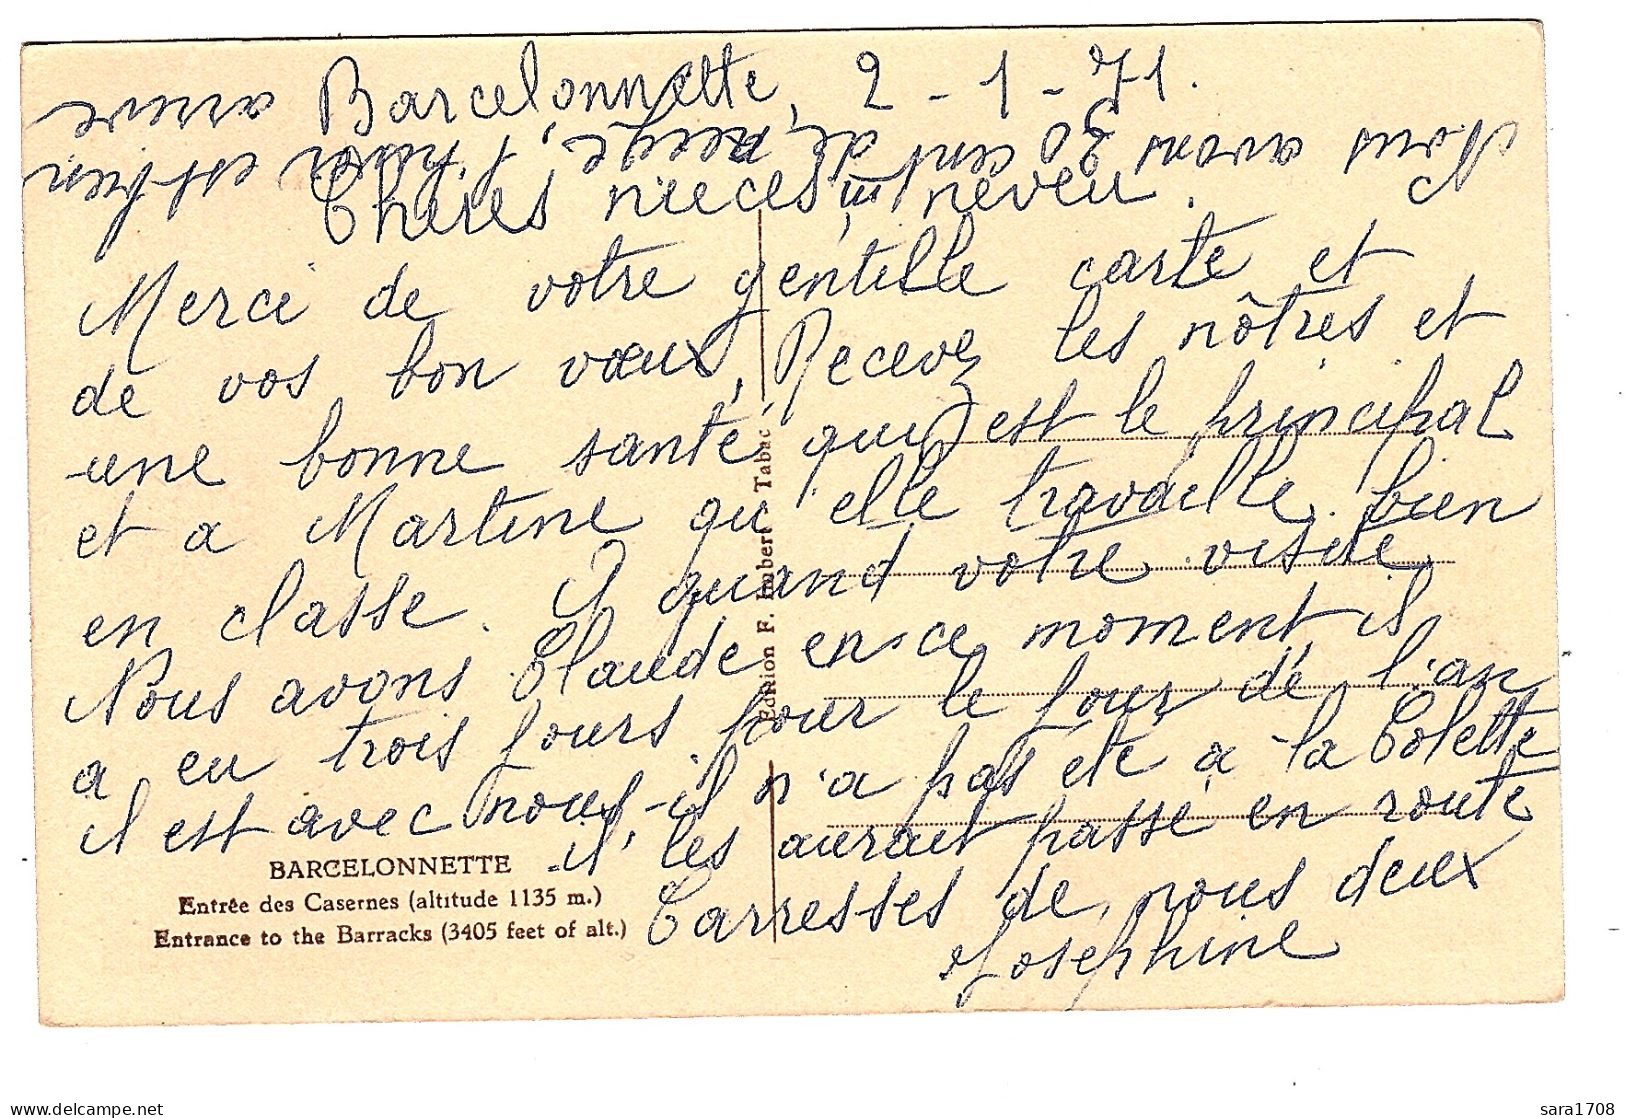 Barcelonnette, 2-1-71.
Chères nieces, neveu.
Merci de votre gentille carte et
de vos bon vœux, Recevez les nôtres et
une bonne santé, qui est le principal
et a Martine qu'elle travaille bien
en classe. A quand votre visite
Nous avons Claude en ce moment il
a eu trois jours pour le jour de l'an
il est avec nous, il n'a pas eté a la Colette
il les aurait passé en route
Carresses de nous deux
Josephine
Nous avons 30 cent de neige,
est bien
arrivé
Edition F. Imbert, Tabac
BARCELONNETTE
Entrée des Casernes (altitude 1135 m.)
Entrance to the Barracks (3405 feet of alt.)
sara1708